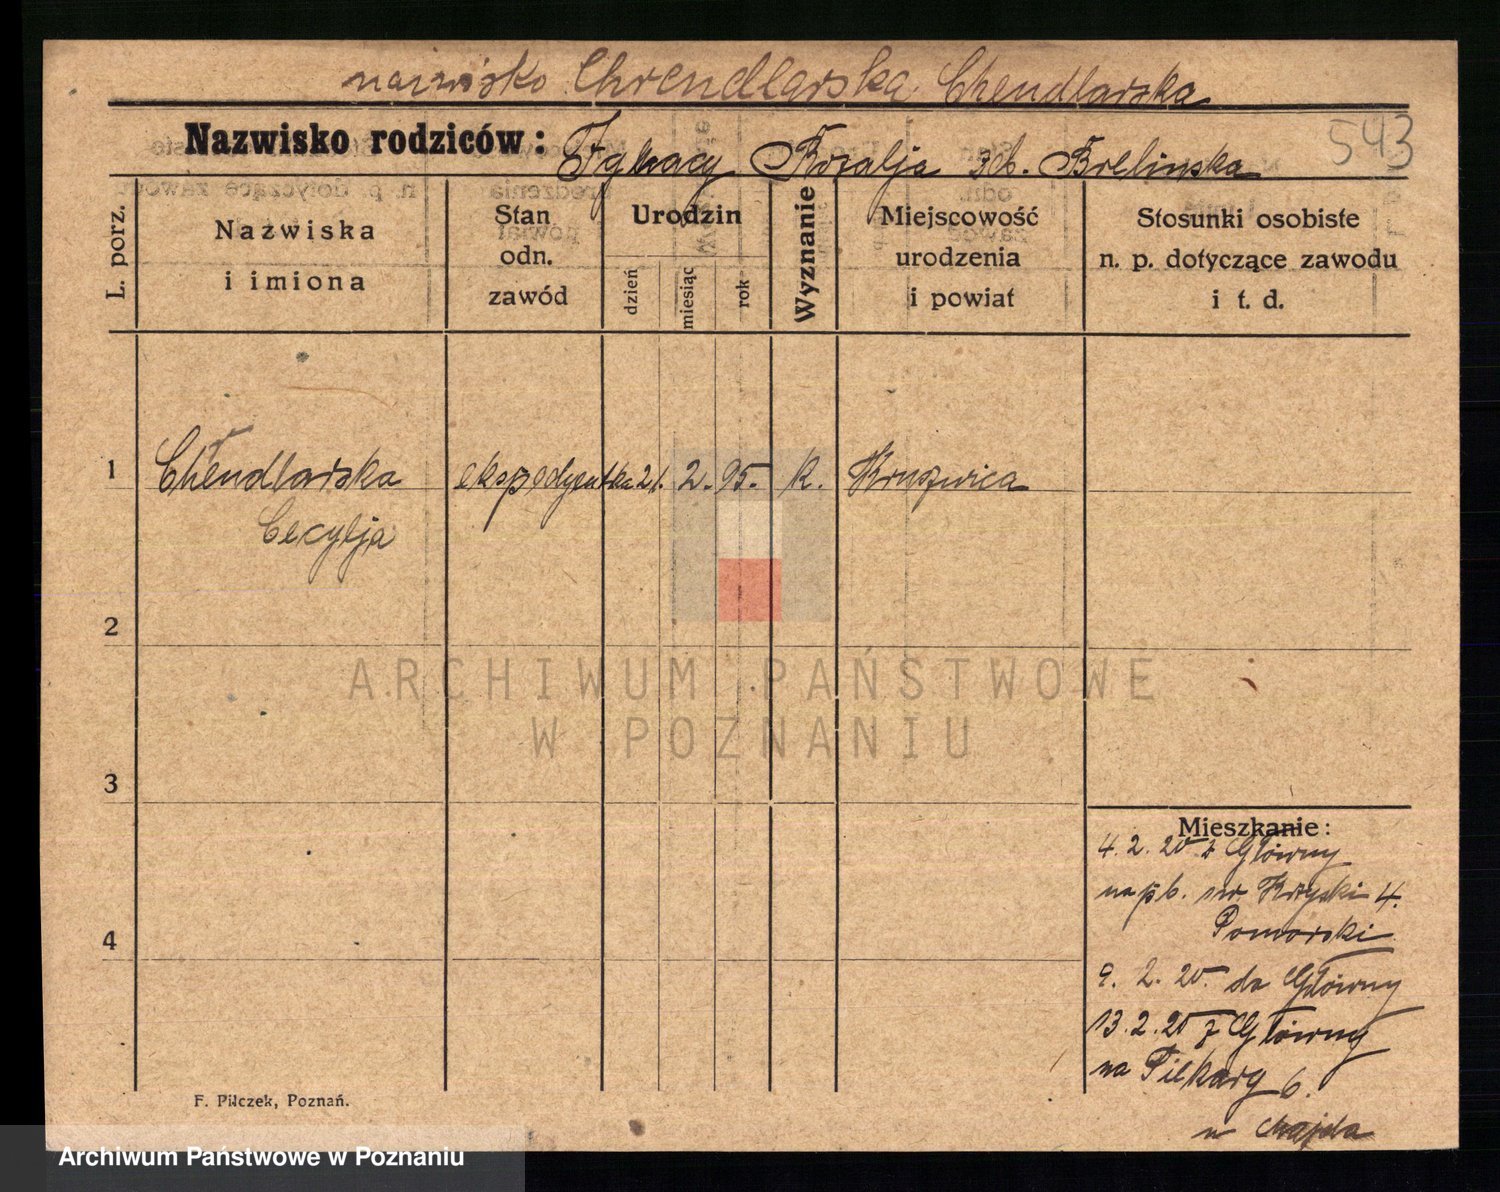 nazwisko Chrendlarska. Chendlarska
543
Nazwisko rodziców: Ignacy Rozalja zd. Brelinska
L. porz.
Nazwiska
i imiona
Stan
odn.
zawód
Urodzin
dzień
miesiąc
rok
Wyznanie
Miejscowość
urodzenia
i powiat
Stosunki osobiste
n. p. dotyczące zawodu
i t. d.
1 Chendlarska ekspedyentka 21. 2. 95. k. Kruszwica
Cecylja
2
3
4
Mieszkanie:
4. 2. 20 z Główny
na pb. 4.
Pomorski
9. 2. 20. do Główny
13. 2. 20 z Główny
na Piekary 6.
u Majda
F. Pilczek, Poznań.
ARCHIWUM PAŃSTWOWE
W POZNANIU
Archiwum Państwowe w Poznaniu